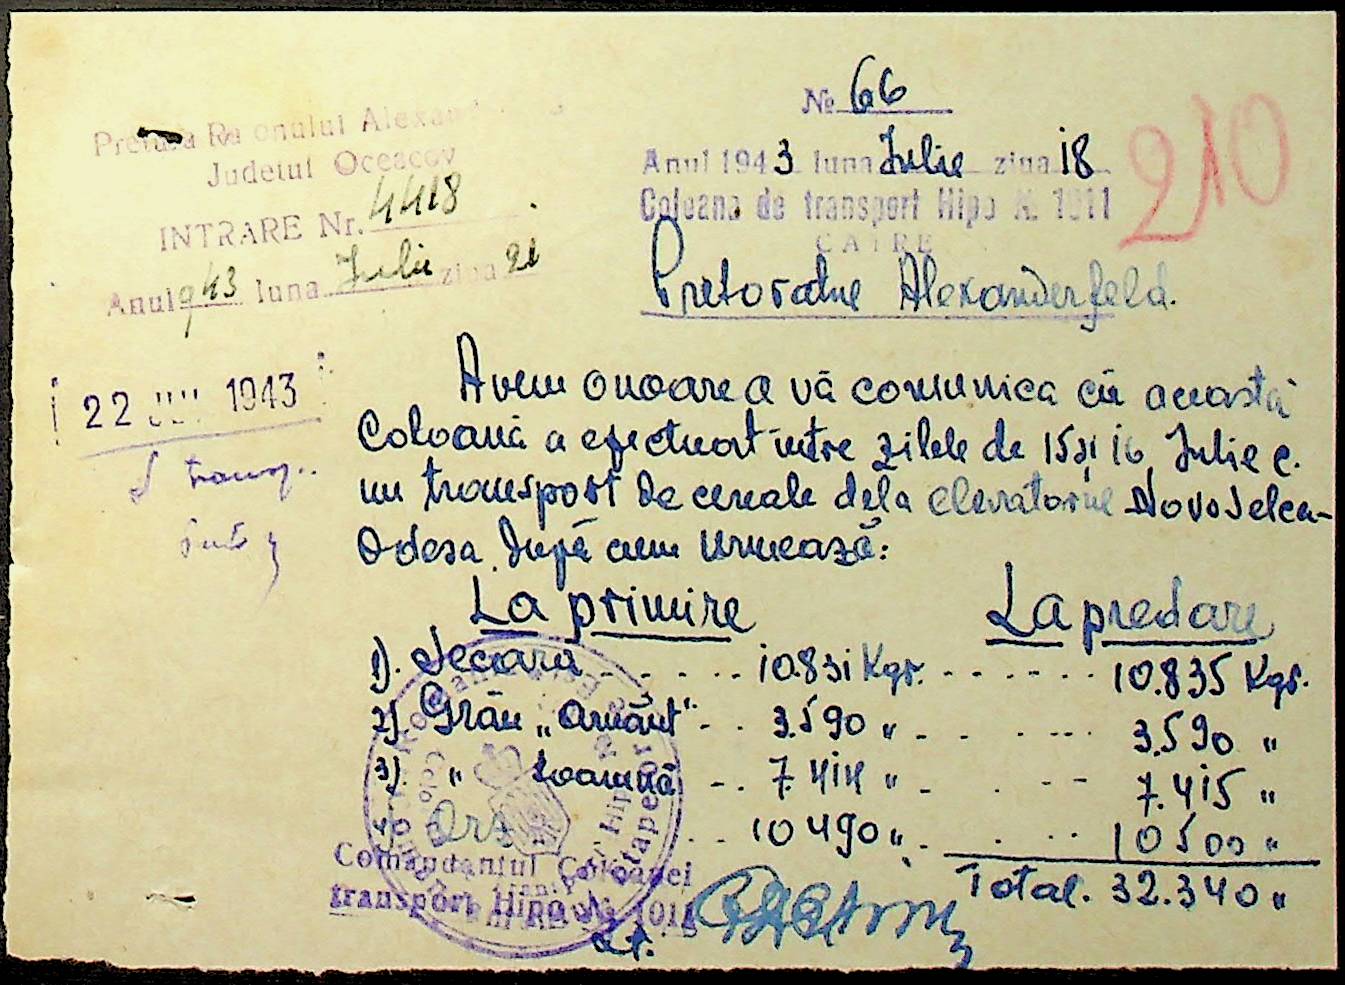 Pretura Raionului Alexand
Judetul Oceacov
INTRARE Nr. 4418
Anul 943 luna Iulie ziua 21
22 1943
№ 66
210
Anul 1943 luna Iulie ziua 18
Coloana de transport Hipo N. 1011
CATRE
Pretoratul Alexanderfeld.
Avem onoare a vă comunica că această
Coloană a efectuat între zilele de 15 și 16 Iulie c.
un transport de cereale dela elevatorul Novoselca-
Odesa după cum urmează:
La primire La predare
1). Secară . . . . . . 10.831 Kgr. . . . . . . 10.835 Kgr.
2). Grâu „Arnăut" . . . 3.590 „ . . . . . . 3.590 „
3). „ Toamnă . . . 7.414 „ . . . . 7.415 „
Orz . . . 10490 „ . . . . 10500 „
Total. 32.340 „
Comandantul Coloanei
transport Hipo № 1011
Lt.